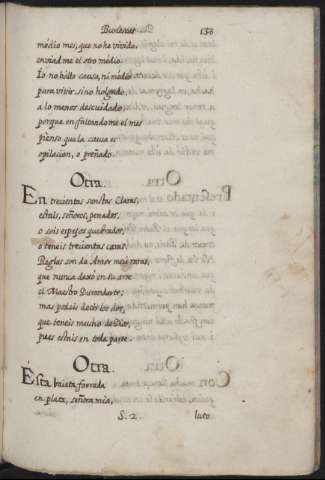 Burlescas 138
médio mes, que no ha vivido,
enviadme el otro médio.
Io no hallo causa, ni médio
para vivir sino holgado,
a lo menos descuidado;
porque en faltandome el mes
pienso que la causa es
opilacion, o preñado.
Otra.
En trecientas sanctas Claras,
estais, señores, penados,
o sois espejos quebrados,
o teneis trecientas caras.
Reglas son de Amor muy raras,
que nunca dexó en su arte
el Maestro
mas podeis decir los dos,
que teneis mucho de Dios,
pues estais en toda parte.
Otra.
Esta baieta forrada
en plata, señora mia,
S. 2. luto